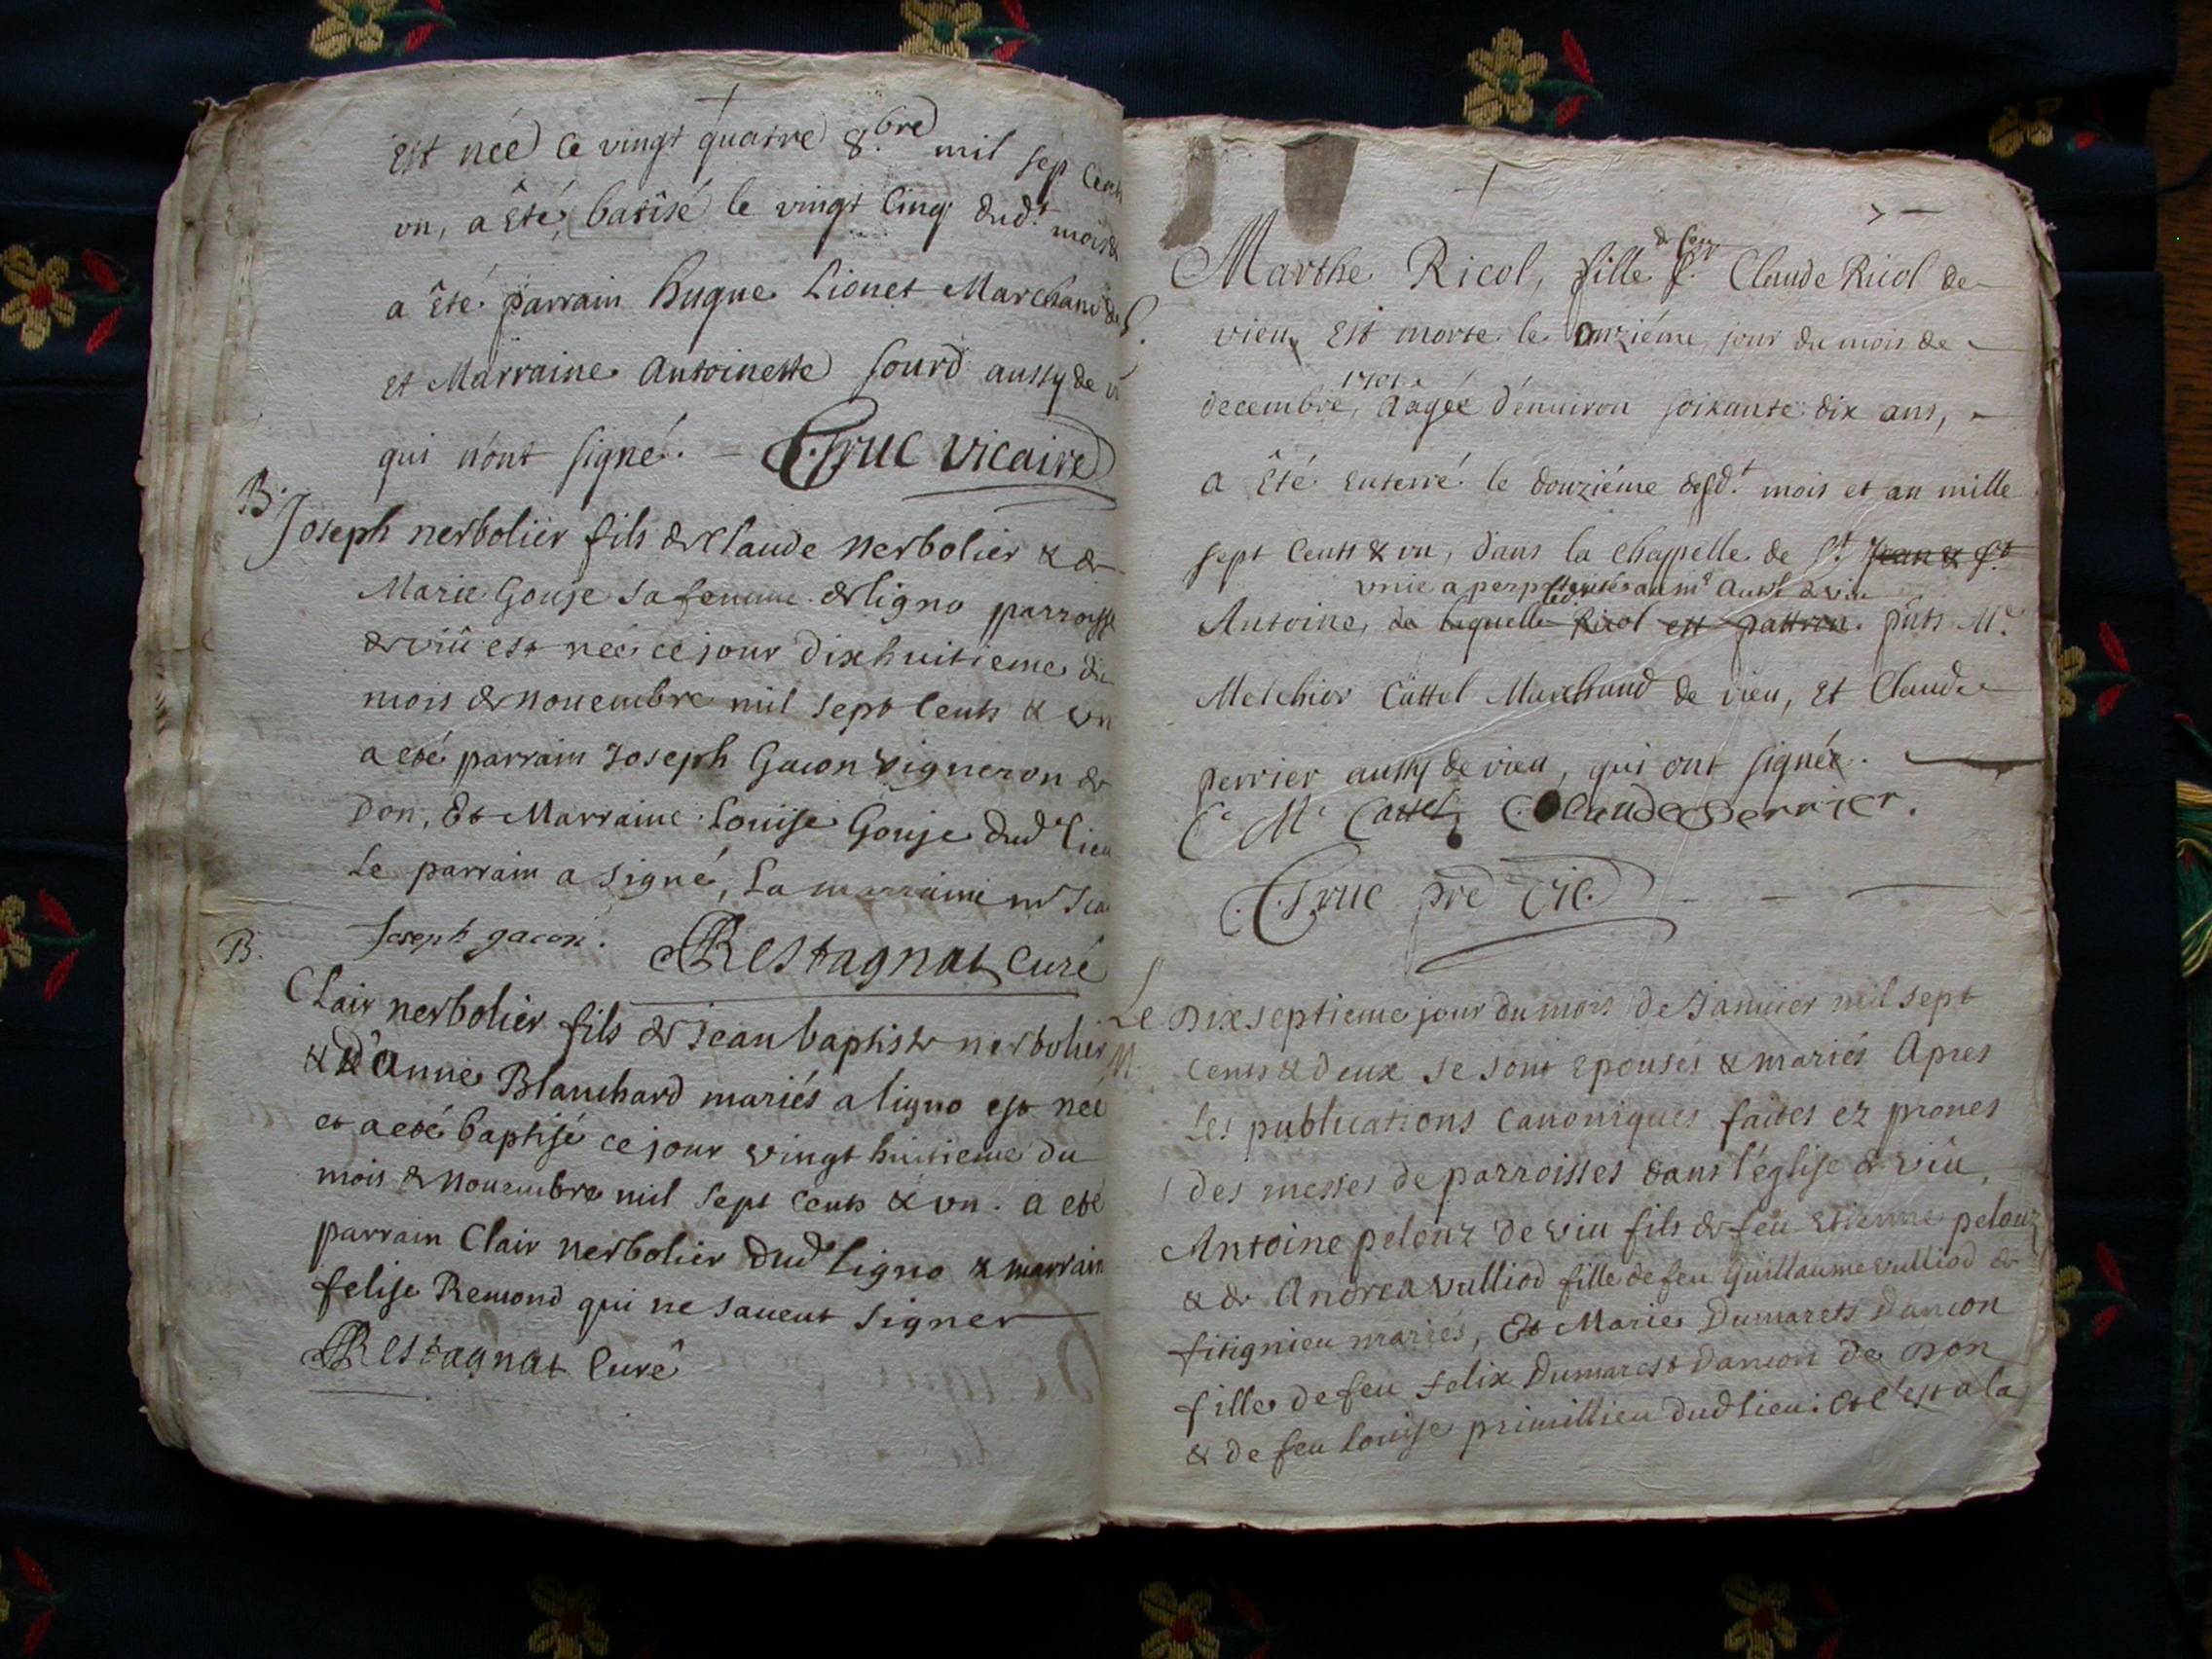 Est née le vingt quatre 8.bre mil sep Cent
un, a êté batisé le vingt Cinq dud.t mois &
a êté parrain huque Lionet Marchand de
et Marraine Antoinette Sourd aussy de vi
qui nônt signé. — C. Truc vicaire
B. Joseph nerbolier fils de Claude nerbolier & de
Marie Gouje sa femme de ligno parroisse
de viû est neé ce jour dixhuitieme du
mois de nouembre mil sept Cents & un
a eté parrain Joseph Gacon vigneron de
Don, Et Marraine Louise Gouje dud lieu
Le parrain a signé, La marraine
Joseph gacon. Restagnat Curé
B. Clair nerbolier fils de Jean baptiste nerbolier
& d'Anne Blanchard mariés a ligno est neé
et a eté baptisé ce jour vingt huitieme du
mois de nouembre mil sept cents & un. a eté
parrain Clair nerbolier dud Ligno & marrain
felise Remond qui ne sauent signer
Restagnat Curê
Marthe Ricol, fille de feu Claude Ricol de
vieu Est morte le onziéme jour du mois de
decembre, 1701 âagée d'énuiron soixante dix ans,
S.
a Êté enterré le douziéme desd.t mois et an mille
sept Cents & un, dans la Chapelle de S.t Jean & S.t
unie a
Antoine, de laquelle Ricol est pattron. pñts M.e
Melchior Cattel Marchand de vieu, et Claude
perrier aussy de vieu, qui ont signée.
C M Cattel Claude perrier.
C. Truc pre vic.
Le Dixseptieme jour du mois de Januier mil sept
M. Cents & deux se sont epousés & mariés Apres
les publications Canoniques faites ez prones
des messes de parroisses dans l'église de viû,
Antoine pelouz de viu fils de feu Etienne pelouz
& de Andrea vulliod fille de feu Guillaume vulliod de
fitignieu mariés, Et Marie Dumarets Dancon
fille de feu Felix Dumarest Dancon de Don
& de feu Louise primillieu dud lieu: Et c'est a la